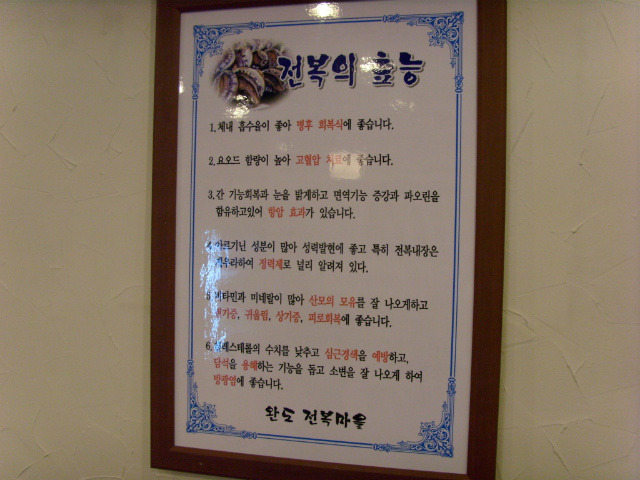 전복의 효능
1. 체내 흡수율이 좋아 병후 회복식에 좋습니다.
2. 요오드 함량이 높아 고혈압 치료에 좋습니다.
3. 간 기능회복과 눈을 밝게하고 면역기능 증강과 파오린을
함유하고있어 항암 효과가 있습니다.
아르기닌 성분이 많아 성력발현에 좋고 특히 전복내장은
하여 정력제로 널리 알려져 있다.
비타민과 미네랄이 많아 산모의 모유를 잘 나오게하고
현기증, 귀울림, 상기증, 피로회복에 좋습니다.
6. 콜레스테롤의 수치를 낮추고 심근경색을 예방하고,
담석을 용해하는 기능을 돕고 소변을 잘 나오게 하여
방광염에 좋습니다.
완도 전복마을